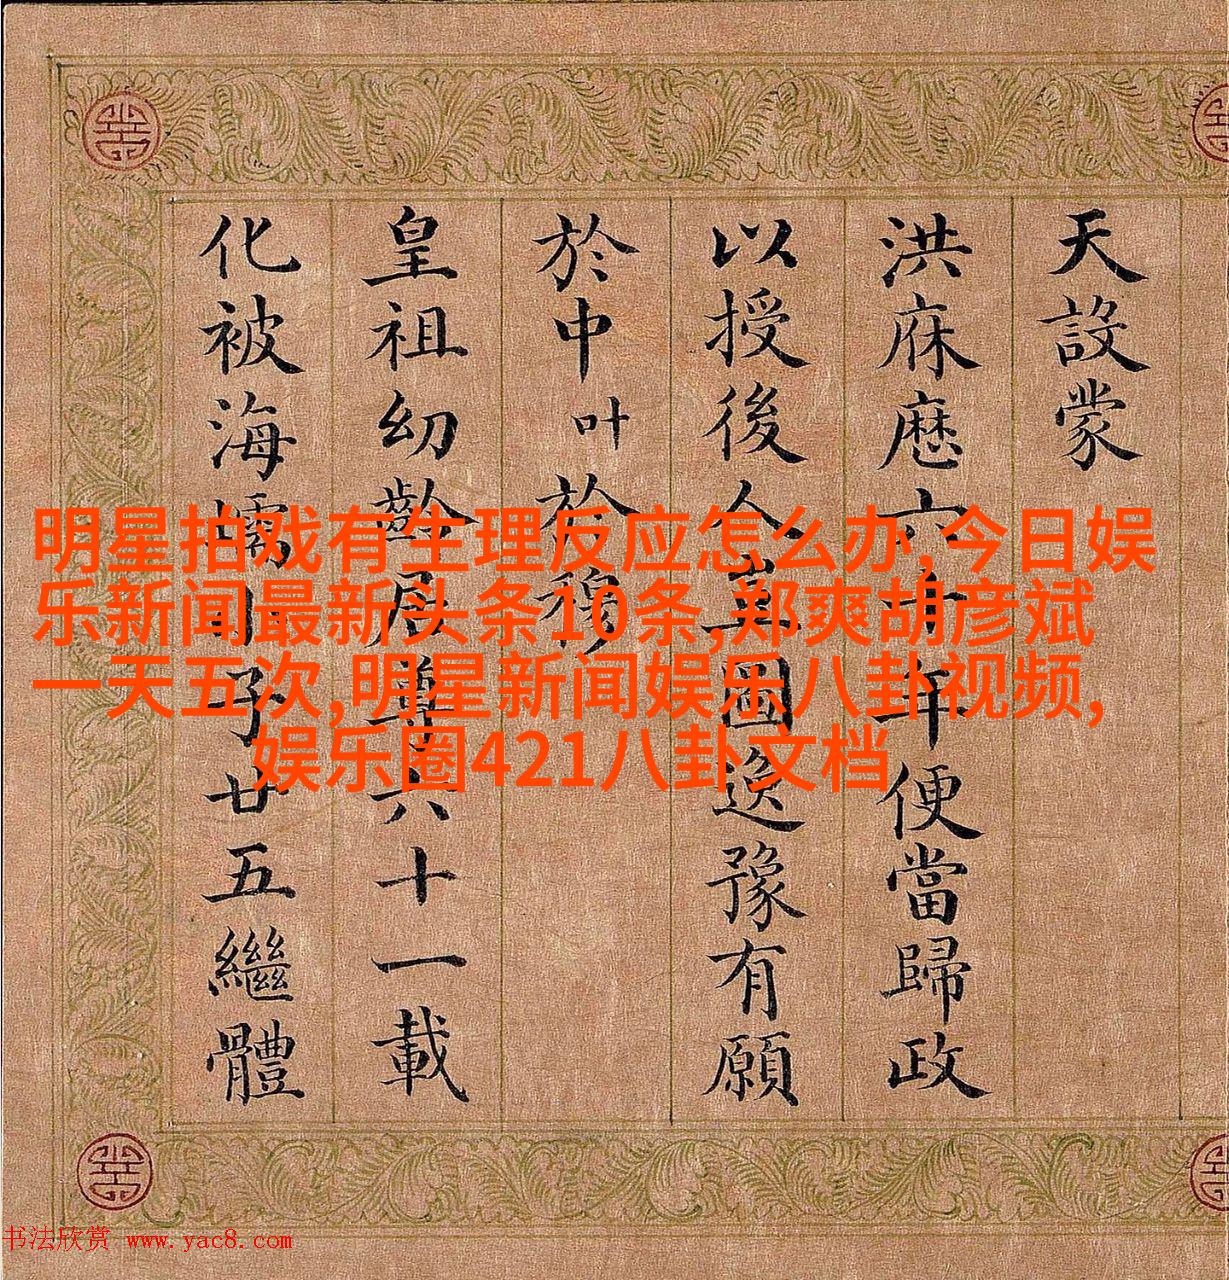 天設蒙
洪庥厯六十年便當歸政
以授後人豈圖逸豫有願
於中叶於穆
皇祖幼齡居尊六十一載
化被海壖小子廿五繼體
明星拍戏有生理反应怎么办,今日娱
乐新闻最新头条10条,郑爽胡彦斌
一天五次,明星新闻娱乐八卦视频,
娱乐圈421八卦文档
书法欣赏 www.yac8.com